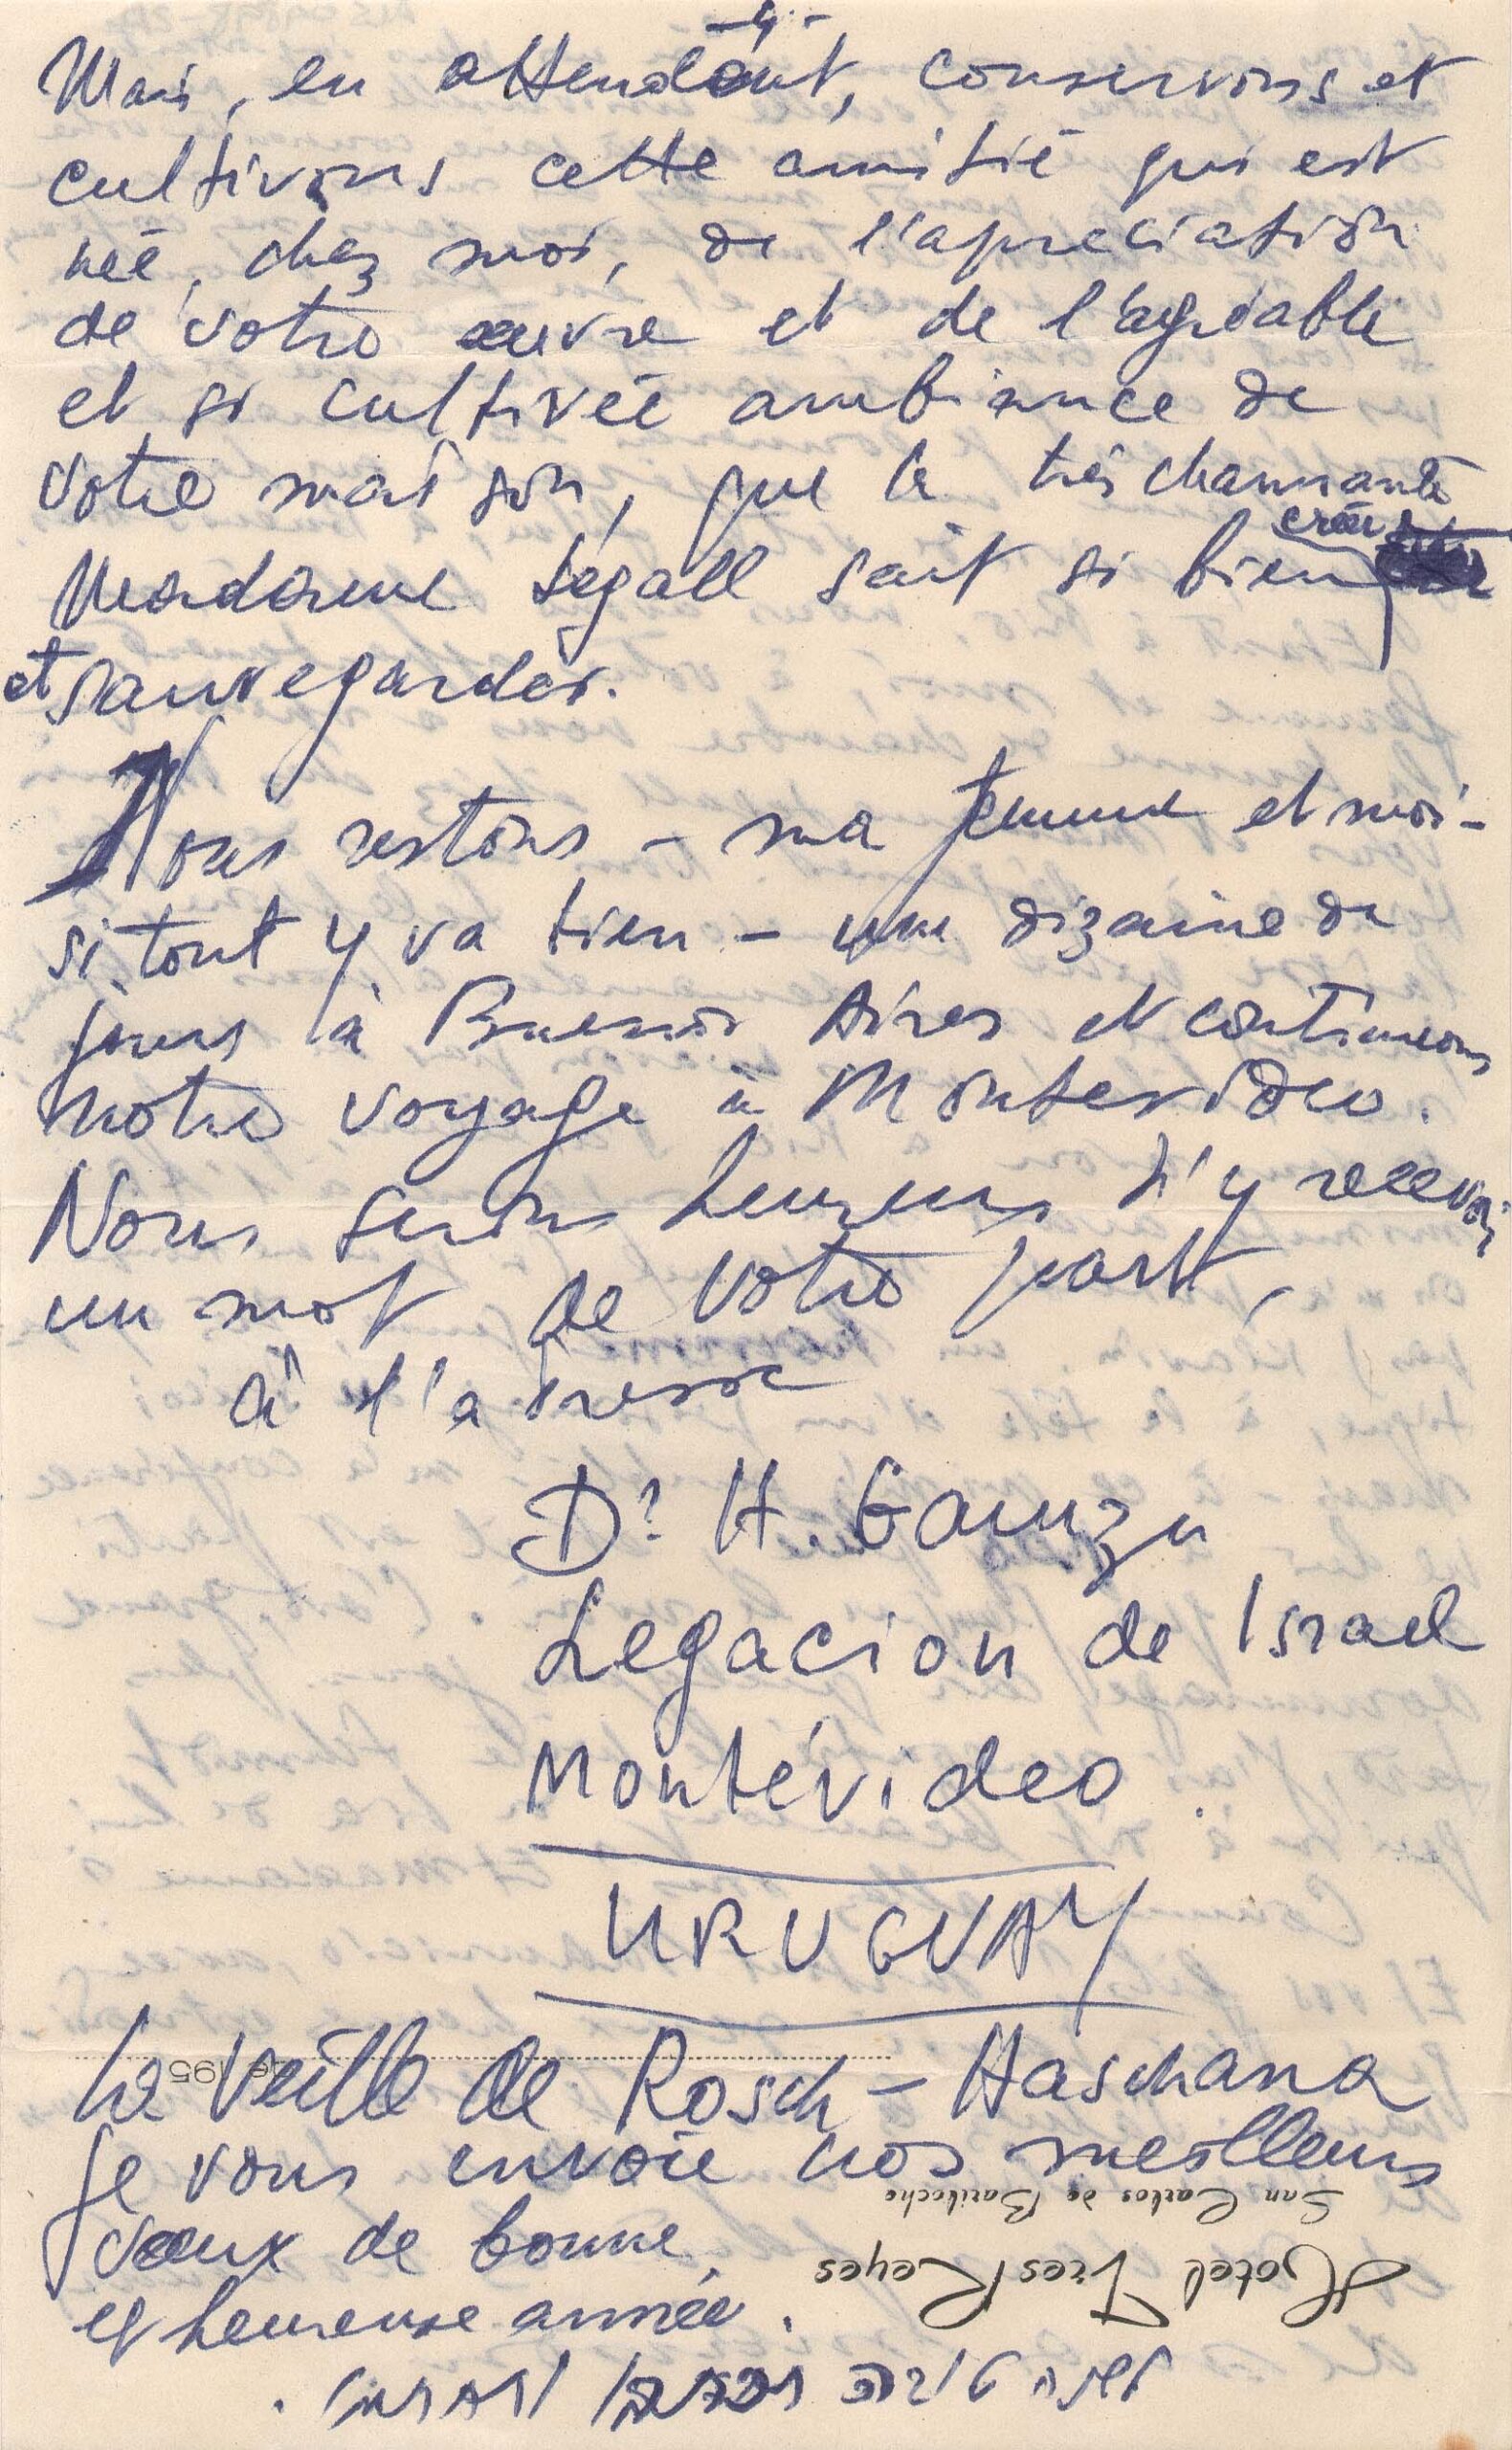 -4-
Mais, en attendant, conservons et
cultivons cette amitié qui est
née, chez moi, de l'apreciation
de votre œuvre et de l'agréable
et si cultivée ambiance de
votre maison, que la très charmante
Madame Segall sait si bien créer
et sauvegarder.
Nous restons – ma femme et moi –
si tout y va bien – une dizaine de
jours à Buenos Aires et continuons
notre voyage à Montevideo.
Nous serons heureux d'y recevoir
un mot de votre part,
à l'adresse
Dr H. Gamzu
Legacion de Israel
Montévideo.
URUGUAY
La veille de Rosch-Haschana
je vous envoie nos meilleurs
vœux de bonne
et heureuse année.
שנה טובה
de 195
San Carlos de Bariloche
Hotel Tres Reyes